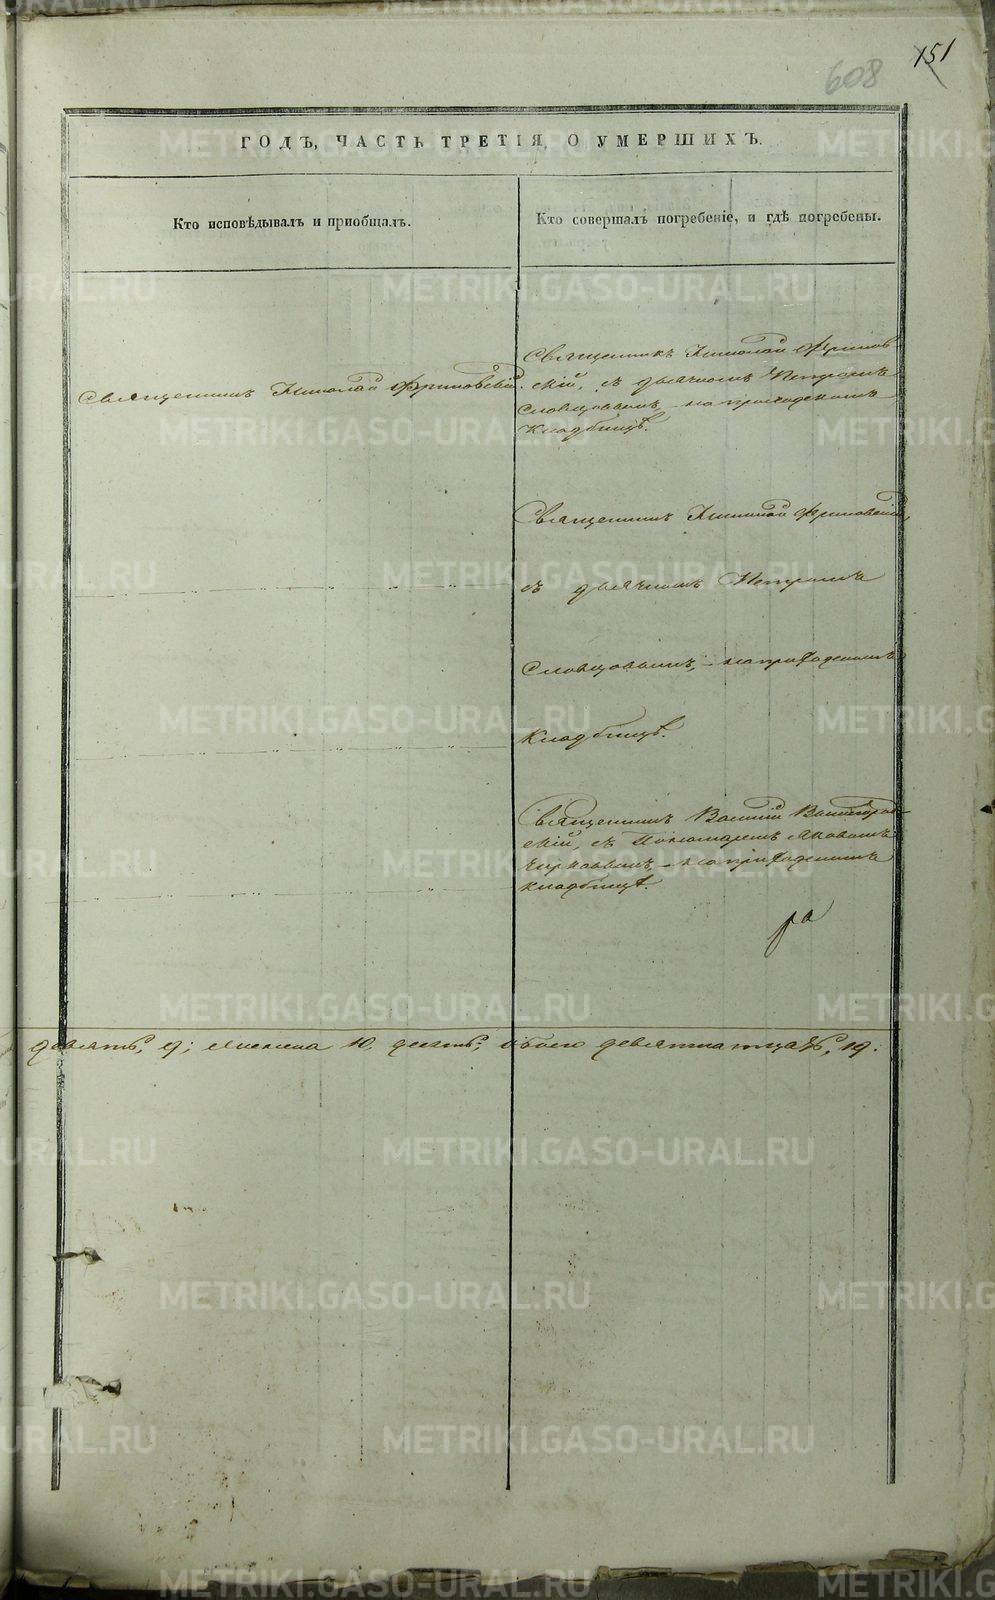 151
608
ГОДЪ, ЧАСТЬ ТРЕТІЯ, О УМЕРШИХЪ.
Кто исповѣдывалъ и приобщалъ.
Кто совершалъ погребеніе, и гдѣ погребены.
Священникъ Николай Фриновскій.
Священникъ Николай Фринов-
скій, съ дьячкомъ Петромъ
Словцовымъ, на приходскомъ
Кладбищѣ.
Священникъ Николай Фриновскій,
съ дьячкомъ Петромъ
Словцовымъ, на приходскомъ
Кладбищѣ.
Священникъ Василій
скій, съ Пономаремъ Яковомъ
на приходскомъ
кладбищѣ.
девять, 9; женска 10, десять; обоего девятнатцать, 19.
METRIKI.GASO-URAL.RU